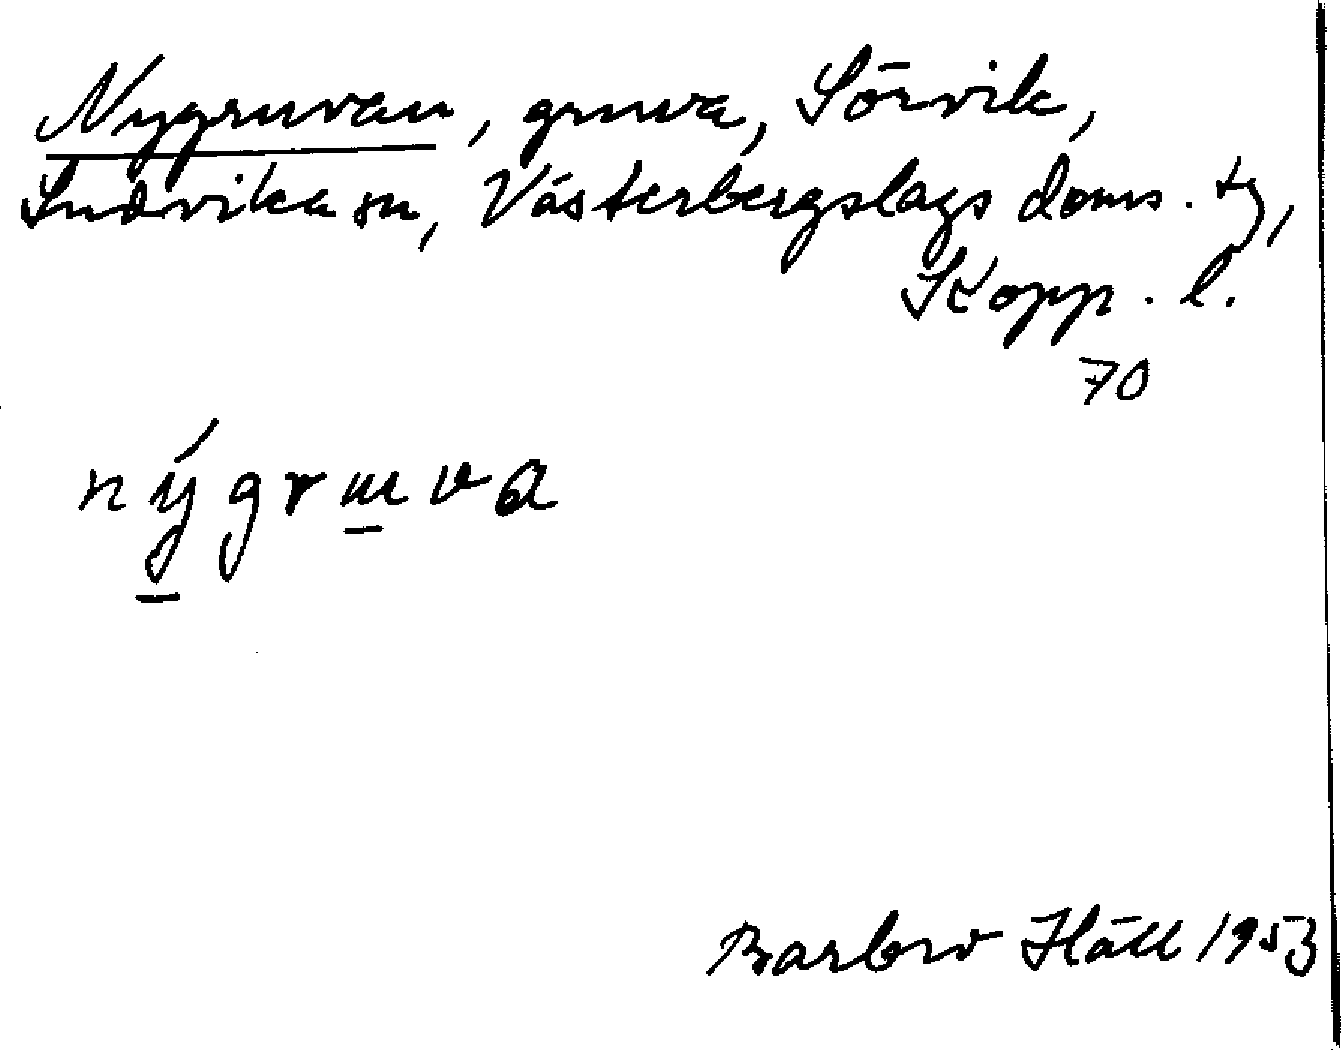 Nygruvan, gruva, Sörvik,
Ludvika sn, Västerbergslags doms. tg,
Kopp. l.
70
nýgruva
Barbro Häll 1953